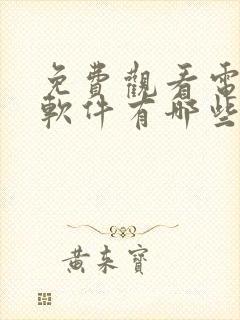 免費觀看電
軟件有哪些
黃來寶